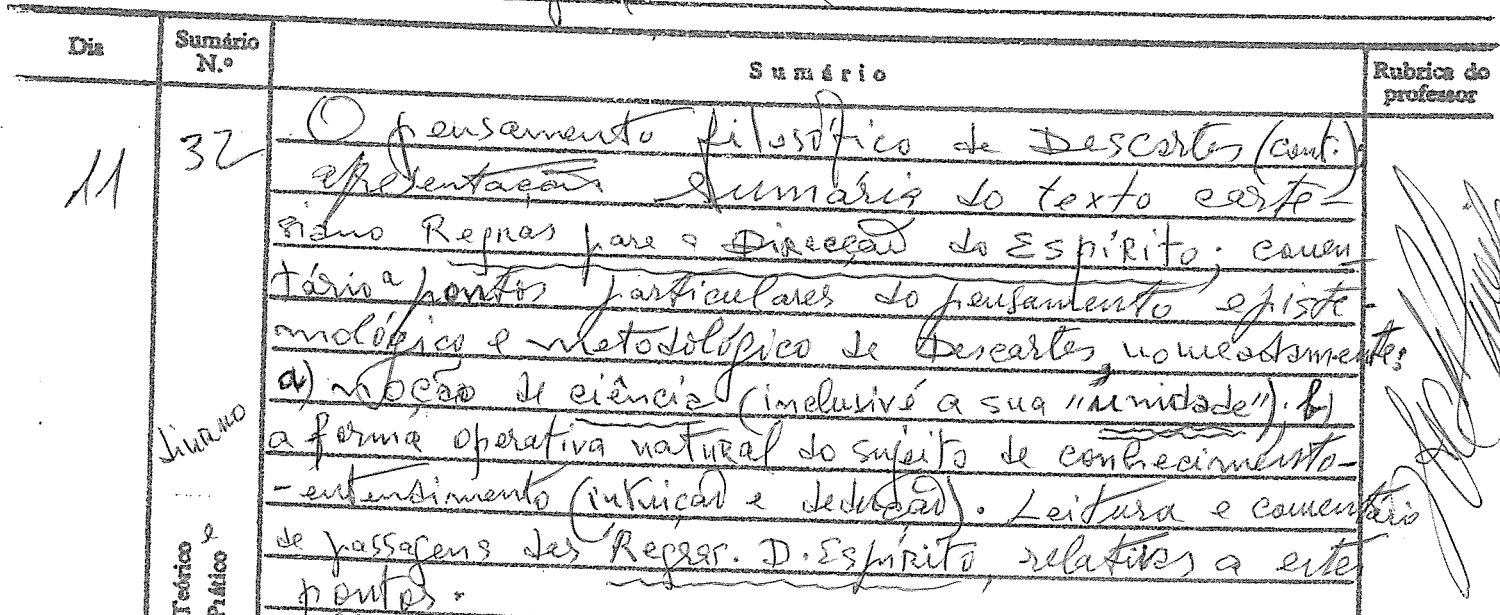 Dia
Sumário N.º
Sumário
Rubrica do professor
11
32
O pensamento filosófico de Descartes (cont.);
apresentação sumária do texto carte-
siano Regras para a Direcção do Espírito; comen-
tário a pontos particulares do pensamento episte-
mológico e metodológico de Descartes, nomeadamente:
a) noção de ciência (inclusivé a sua "unidade"); b)
a forma operativa natural do sujeito de conhecimento-
-entendimento (intuição e dedução). Leitura e comentário
de passagens das Regras. D. Espírito, relativas a estes
pontos.
diurno
Teórico e
Prático